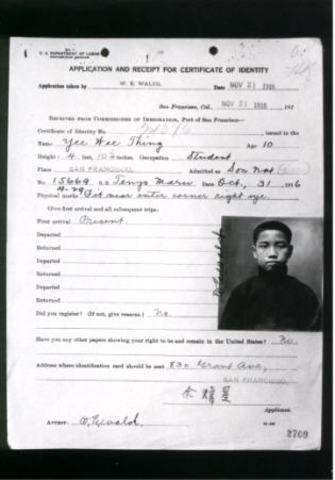 U. S. DEPARTMENT OF LABOR
IMMIGRATION SERVICE
APPLICATION AND RECEIPT FOR CERTIFICATE OF IDENTITY
Application taken by W. E. WALSH. Date NOV 21 1916
San Francisco, Cal., NOV 21 1916 , 191
RECEIVED FROM COMMISSIONER OF IMMIGRATION, Port of San Francisco—
Certificate of Identity No. issued in the
Name Yee Wee Thing Age 10
Height 4 feet, inches. Occupation Student
Place SAN FRANCISCO, Admitted as Son Nat
No. 15669 S S Tenyo Maru Date Oct, 31 1916
Physical marks Pit near outer corner right eye.
Give first arrival and all subsequent trips:
First arrival Present.
Departed
Returned
Departed
Returned
Departed
Returned
Did you register? (If not, give reasons.) No.
Have you any other papers showing your right to be and remain in the United States? No.
Address where identification card should be sent 830 Grant Ave,
SAN FRANCISCO,
余
Applicant.
Attest:
2709